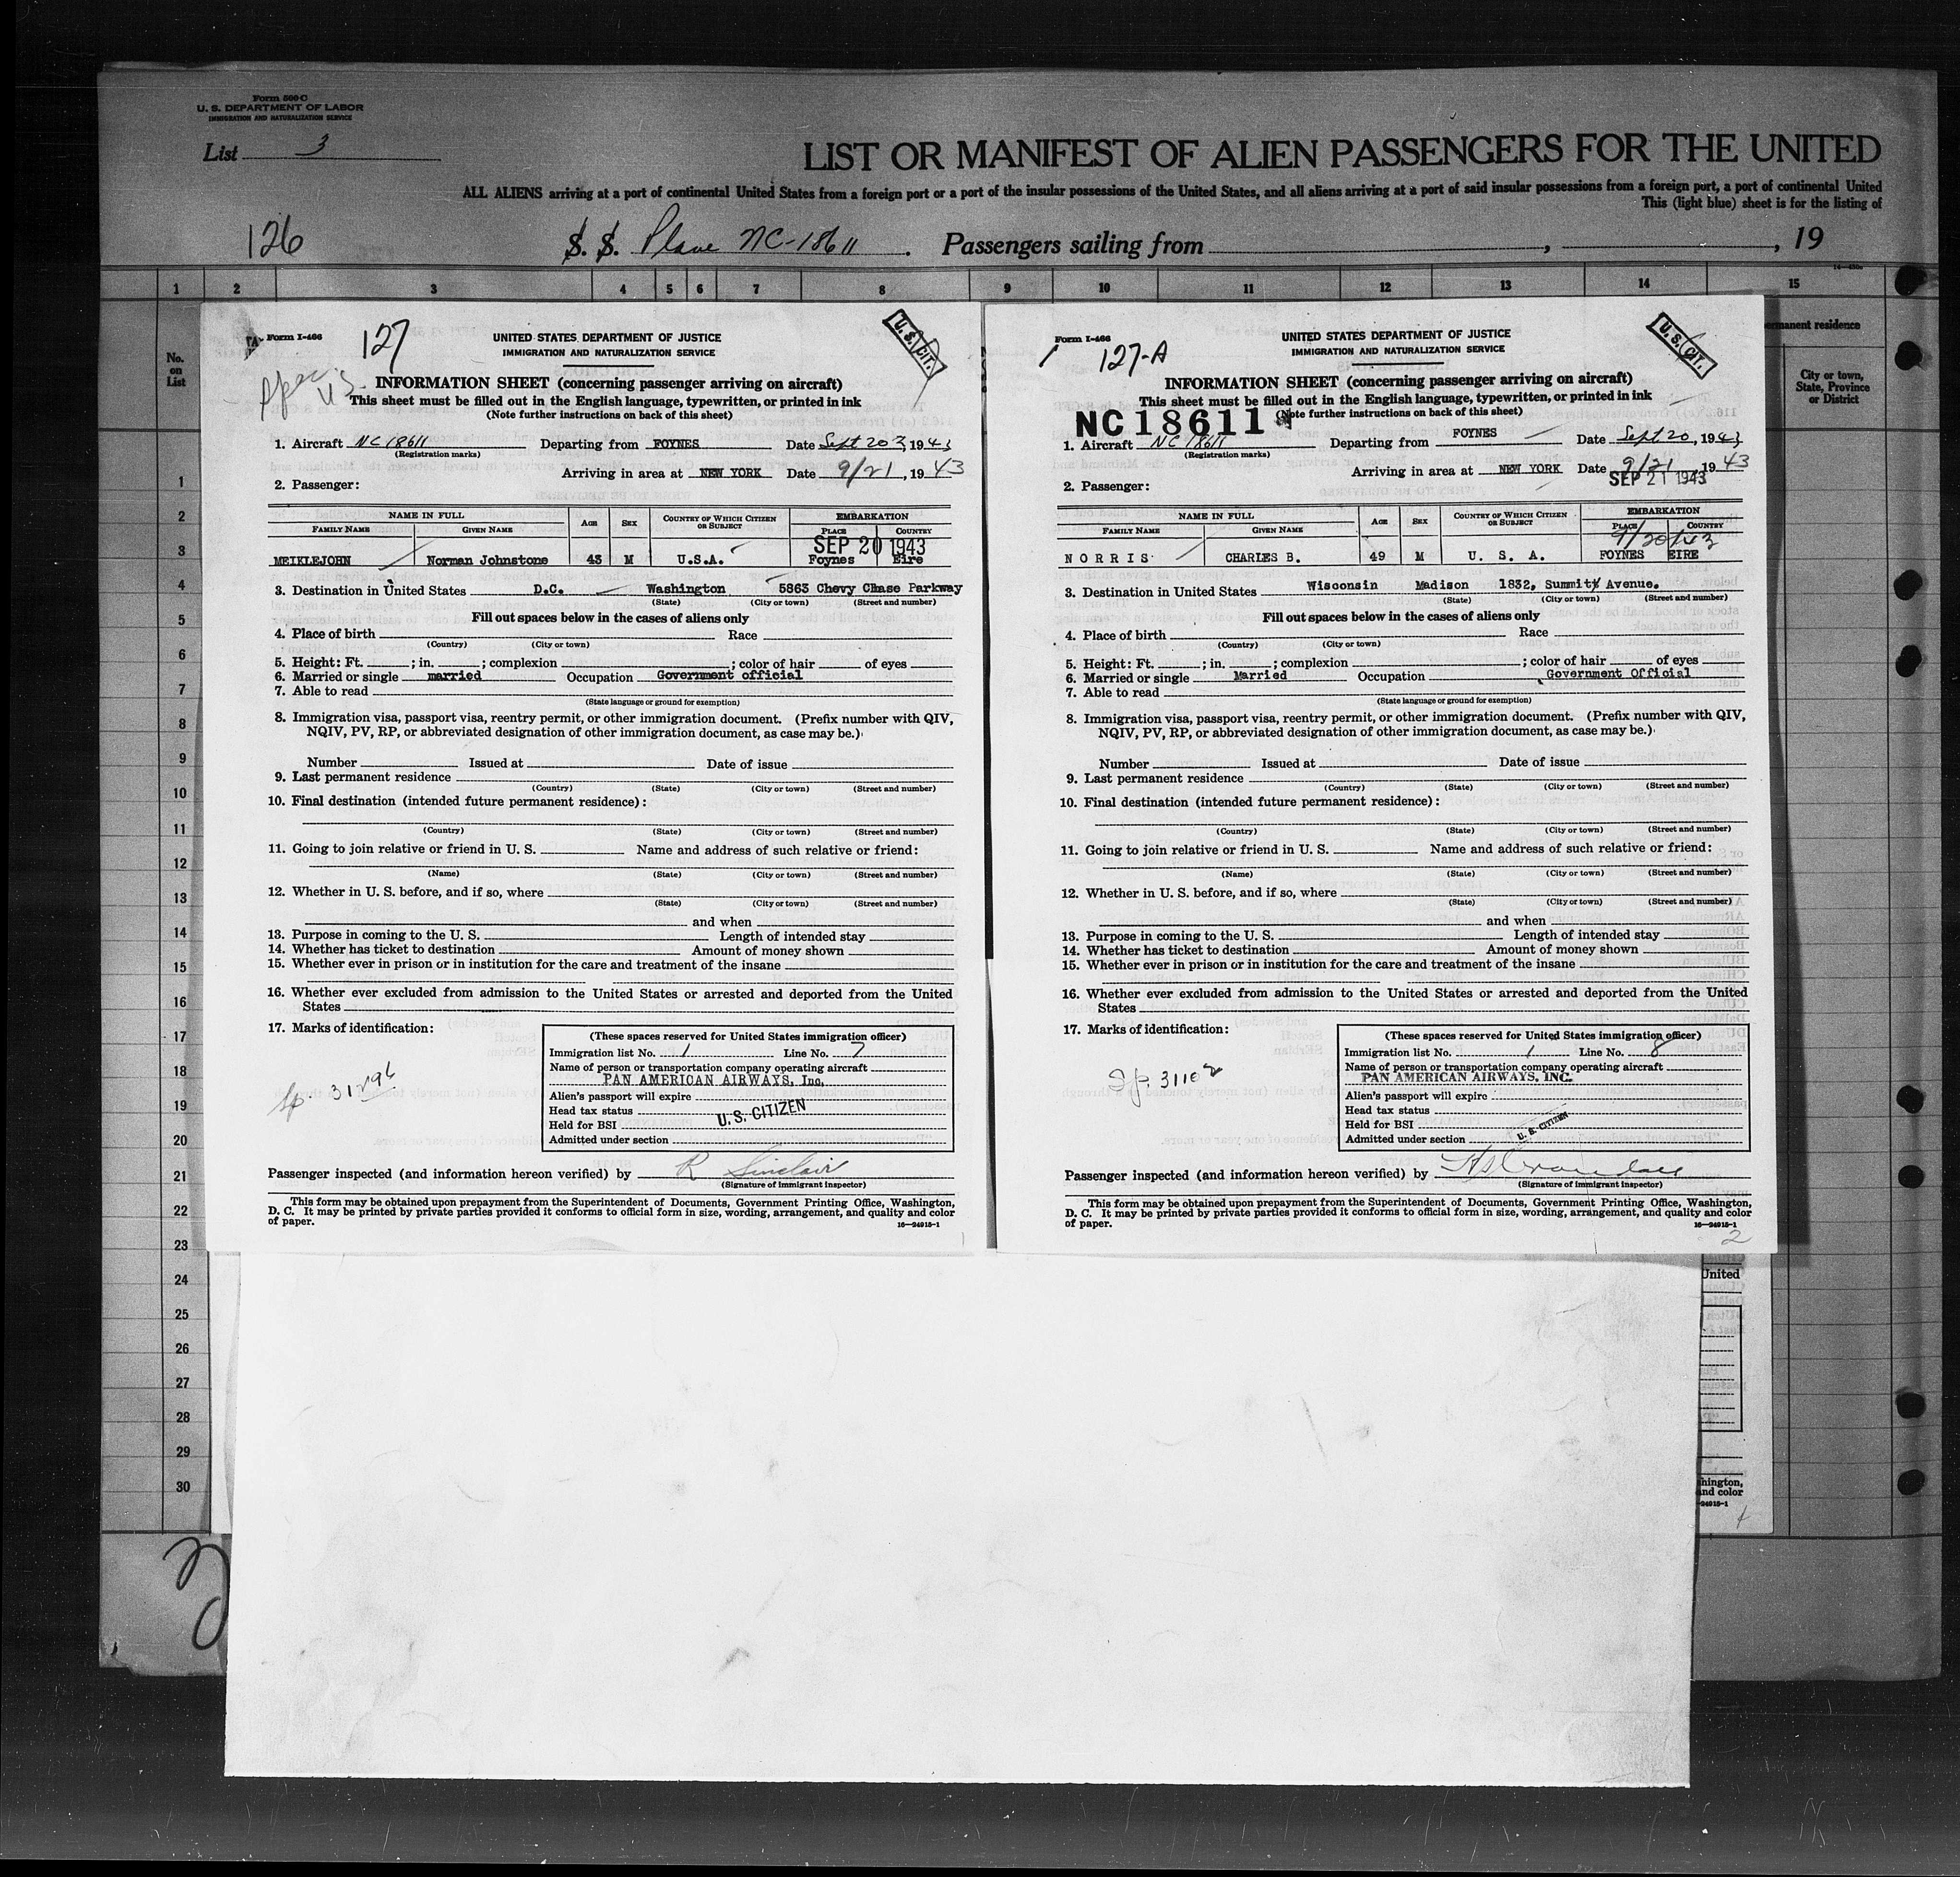 Form 500-C
U. S. DEPARTMENT OF LABOR
IMMIGRATION AND NATURALIZATION SERVICE
List 3
LIST OR MANIFEST OF ALIEN PASSENGERS FOR THE UNITED
ALL ALIENS arriving at a port of continental United States from a foreign port or a port of the insular possessions of the United States, and all aliens arriving at a port of said insular possessions from a foreign port, a port of continental United
This (light blue) sheet is for the listing of
126 S. S. Plane NC-18611. Passengers sailing from , , 19
1 2 3 4 5 6 7 8 9 10 11 12 13 14 15
No. on List
permanent residence
City or town, State, Province or District
1
2
3
4
5
6
7
8
9
10
11
12
13
14
15
16
17
18
19
20
21
22
23
24
25
26
27
28
29
30
Form I-466
127
UNITED STATES DEPARTMENT OF JUSTICE
IMMIGRATION AND NATURALIZATION SERVICE
U.S. CIT.
INFORMATION SHEET (concerning passenger arriving on aircraft)
This sheet must be filled out in the English language, typewritten, or printed in ink
(Note further instructions on back of this sheet)
1. Aircraft NC 18611 Departing from FOYNES Date Sept 20, 1943
(Registration marks)
Arriving in area at NEW YORK Date 9/21, 1943
2. Passenger:
NAME IN FULL AGE SEX COUNTRY OF WHICH CITIZEN OR SUBJECT EMBARKATION
FAMILY NAME GIVEN NAME PLACE COUNTRY
SEP 20 1943
MEIKLEJOHN Norman Johnstone 43 M U.S.A. Foynes Eire
3. Destination in United States D.C. Washington 5863 Chevy Chase Parkway
(State) (City or town) (Street and number)
Fill out spaces below in the cases of aliens only
4. Place of birth Race
(Country) (City or town)
5. Height: Ft. ; in. ; complexion ; color of hair of eyes
6. Married or single married Occupation Government official
7. Able to read
(State language or ground for exemption)
8. Immigration visa, passport visa, reentry permit, or other immigration document. (Prefix number with QIV,
NQIV, PV, RP, or abbreviated designation of other immigration document, as case may be.)
Number Issued at Date of issue
9. Last permanent residence
(Country) (State) (City or town) (Street and number)
10. Final destination (intended future permanent residence):
(Country) (State) (City or town) (Street and number)
11. Going to join relative or friend in U. S. Name and address of such relative or friend:
(Name) (State) (City or town) (Street and number)
12. Whether in U. S. before, and if so, where
(State) (City or town) (Street and number)
and when
13. Purpose in coming to the U. S. Length of intended stay
14. Whether has ticket to destination Amount of money shown
15. Whether ever in prison or in institution for the care and treatment of the insane
16. Whether ever excluded from admission to the United States or arrested and deported from the United
States
17. Marks of identification:
(These spaces reserved for United States immigration officer)
Immigration list No. 1 Line No. 7
Name of person or transportation company operating aircraft
PAN AMERICAN AIRWAYS, Inc.
Alien's passport will expire
Head tax status U. S. CITIZEN
Held for BSI
Admitted under section
Passenger inspected (and information hereon verified) by R Sinclair
(Signature of immigrant inspector)
This form may be obtained upon prepayment from the Superintendent of Documents, Government Printing Office, Washington,
D. C. It may be printed by private parties provided it conforms to official form in size, wording, arrangement, and quality and color
of paper.
16—24915-1
Form I-466
127-A
UNITED STATES DEPARTMENT OF JUSTICE
IMMIGRATION AND NATURALIZATION SERVICE
U.S. CIT.
INFORMATION SHEET (concerning passenger arriving on aircraft)
This sheet must be filled out in the English language, typewritten, or printed in ink
NC 18611 (Note further instructions on back of this sheet)
1. Aircraft NC 18611 Departing from FOYNES Date Sept 20, 1943
(Registration marks)
Arriving in area at NEW YORK Date 9/21 1943
SEP 21 1943
2. Passenger:
NAME IN FULL AGE SEX COUNTRY OF WHICH CITIZEN OR SUBJECT EMBARKATION
FAMILY NAME GIVEN NAME PLACE COUNTRY
9/20/43
NORRIS CHARLES B. 49 M U. S. A. FOYNES EIRE
3. Destination in United States Wisconsin Madison 1832, Summit Avenue.
(State) (City or town) (Street and number)
Fill out spaces below in the cases of aliens only
4. Place of birth Race
(Country) (City or town)
5. Height: Ft. ; in. ; complexion ; color of hair of eyes
6. Married or single Married Occupation Government Official
7. Able to read
(State language or ground for exemption)
8. Immigration visa, passport visa, reentry permit, or other immigration document. (Prefix number with QIV,
NQIV, PV, RP, or abbreviated designation of other immigration document, as case may be.)
Number Issued at Date of issue
9. Last permanent residence
(Country) (State) (City or town) (Street and number)
10. Final destination (intended future permanent residence):
(Country) (State) (City or town) (Street and number)
11. Going to join relative or friend in U. S. Name and address of such relative or friend:
(Name) (State) (City or town) (Street and number)
12. Whether in U. S. before, and if so, where
(State) (City or town) (Street and number)
and when
13. Purpose in coming to the U. S. Length of intended stay
14. Whether has ticket to destination Amount of money shown
15. Whether ever in prison or in institution for the care and treatment of the insane
16. Whether ever excluded from admission to the United States or arrested and deported from the United
States
17. Marks of identification:
(These spaces reserved for United States immigration officer)
Immigration list No. 1 Line No. 8
Name of person or transportation company operating aircraft
PAN AMERICAN AIRWAYS, INC.
Alien's passport will expire
Head tax status
Held for BSI
Admitted under section U. S. CITIZEN
Passenger inspected (and information hereon verified) by
(Signature of immigrant inspector)
This form may be obtained upon prepayment from the Superintendent of Documents, Government Printing Office, Washington,
D. C. It may be printed by private parties provided it conforms to official form in size, wording, arrangement, and quality and color
of paper.
16—24915-1
2
United
hington,
and color
-24915-1